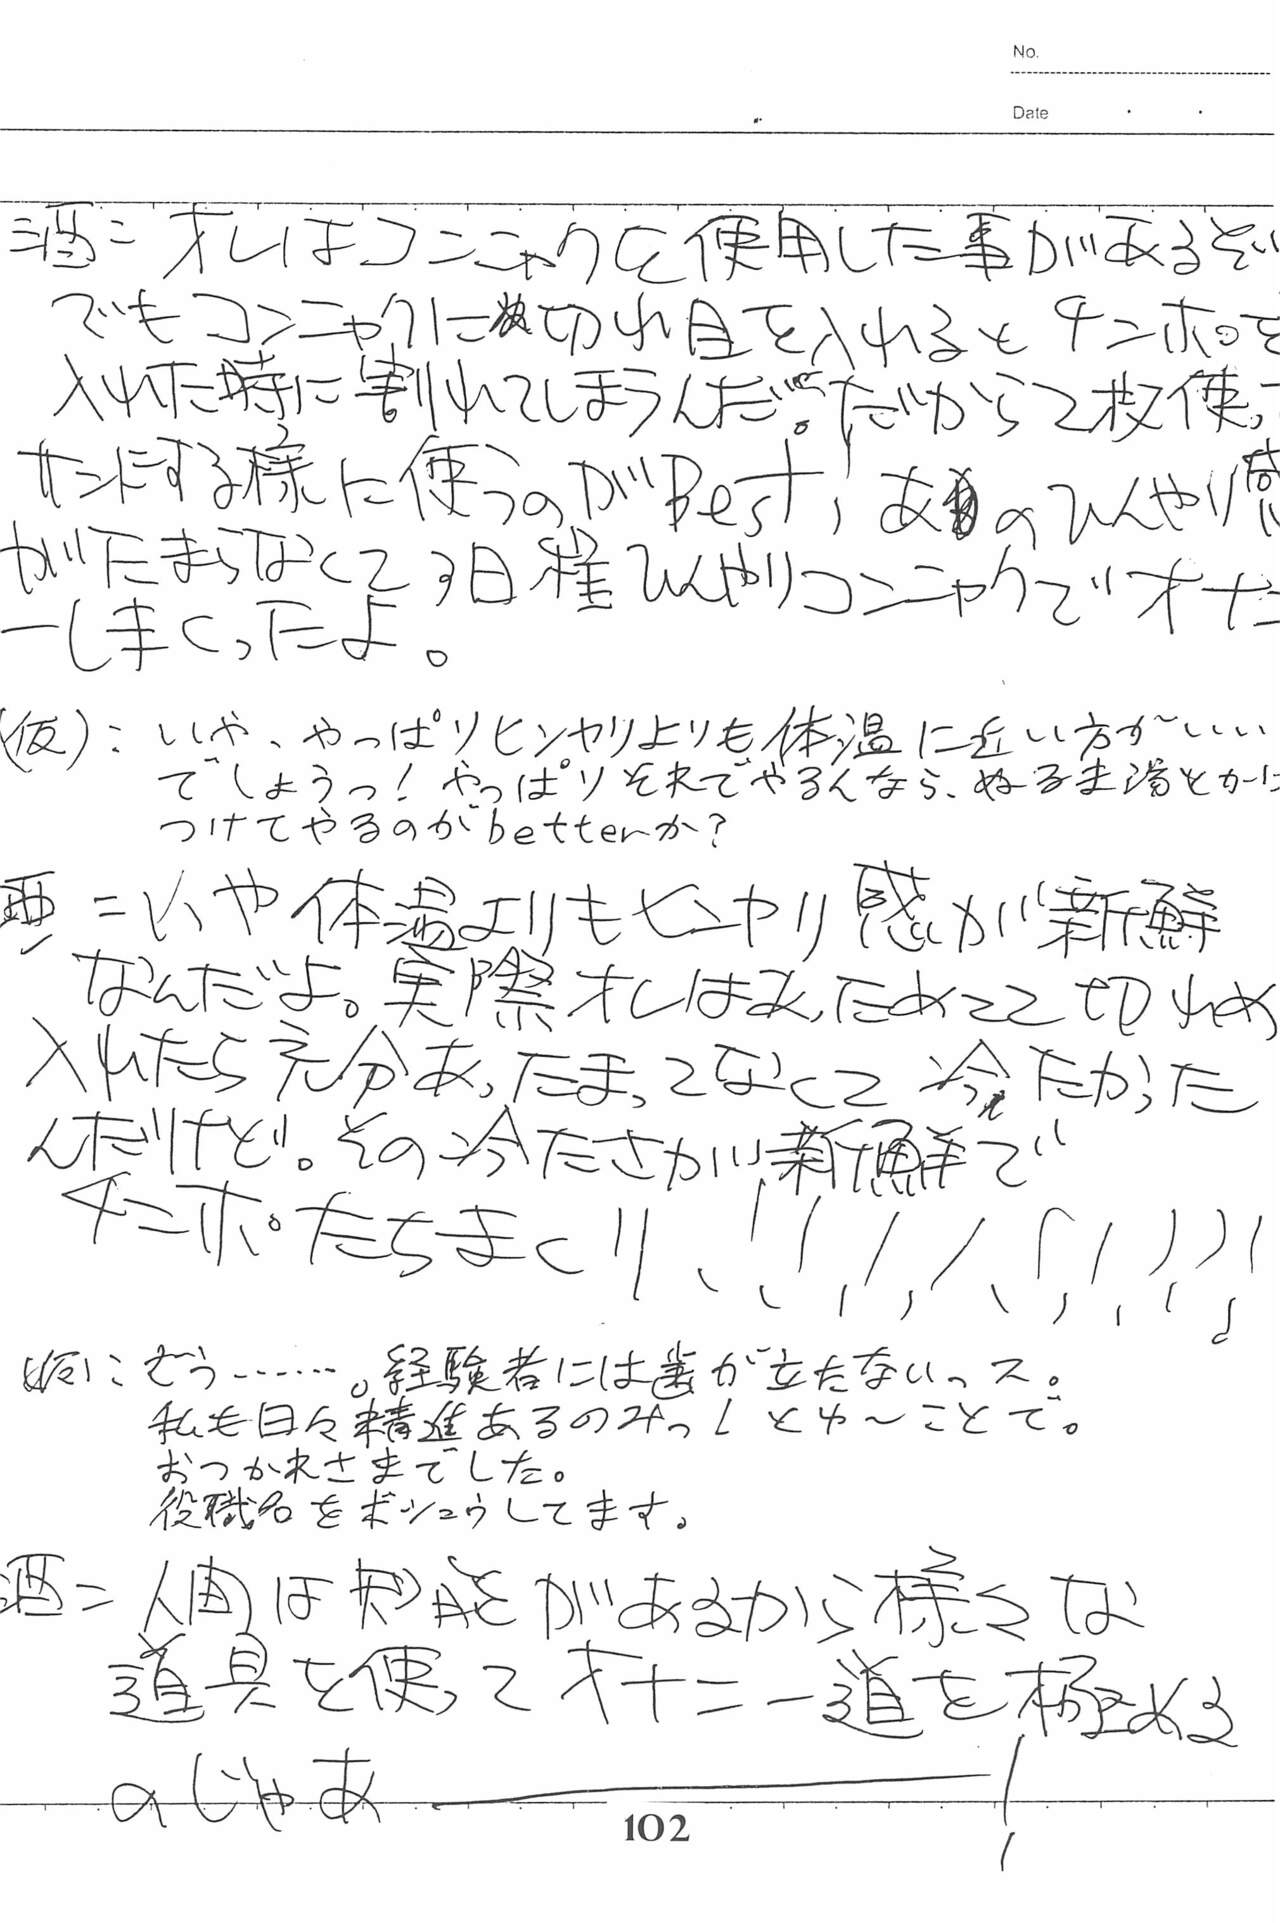 No.
Date
酒：オレはコンニャクを使用した事があるぞい
でもコンニャクに切れ目を入れるとチンポを
入れた時に割れてしまうんだ。だから2枚使っ
サンドする様に使うのがBest！あのひんやり感
がたまらなくて3日程ひんやりコンニャクでオナニ
ーしまくったよ。
(仮)：いや、やっぱりヒンヤリよりも体温に近い方がいい
でしょうっ！やっぱりそれでやるんなら、ぬるま湯とかに
つけてやるのがbetterか？
酒：いや体温よりもヒンヤリ感が新鮮
なんだよ。実際オレはあっためてて切れめ
入れたら充分あったまってなくて冷たかった
んだけど。その冷たさが新鮮で
チンポたちまくり！！！！！！！！！
仮：どう……。経験者には歯が立たないっス。
私も日々精進あるのみっしとゆ〜ことで。
おつかれさまでした。
役職名をボシュウしてます。
酒：人間は知能があるから様々な
道具を使ってオナニー道を極める
のじゃあ――！
102